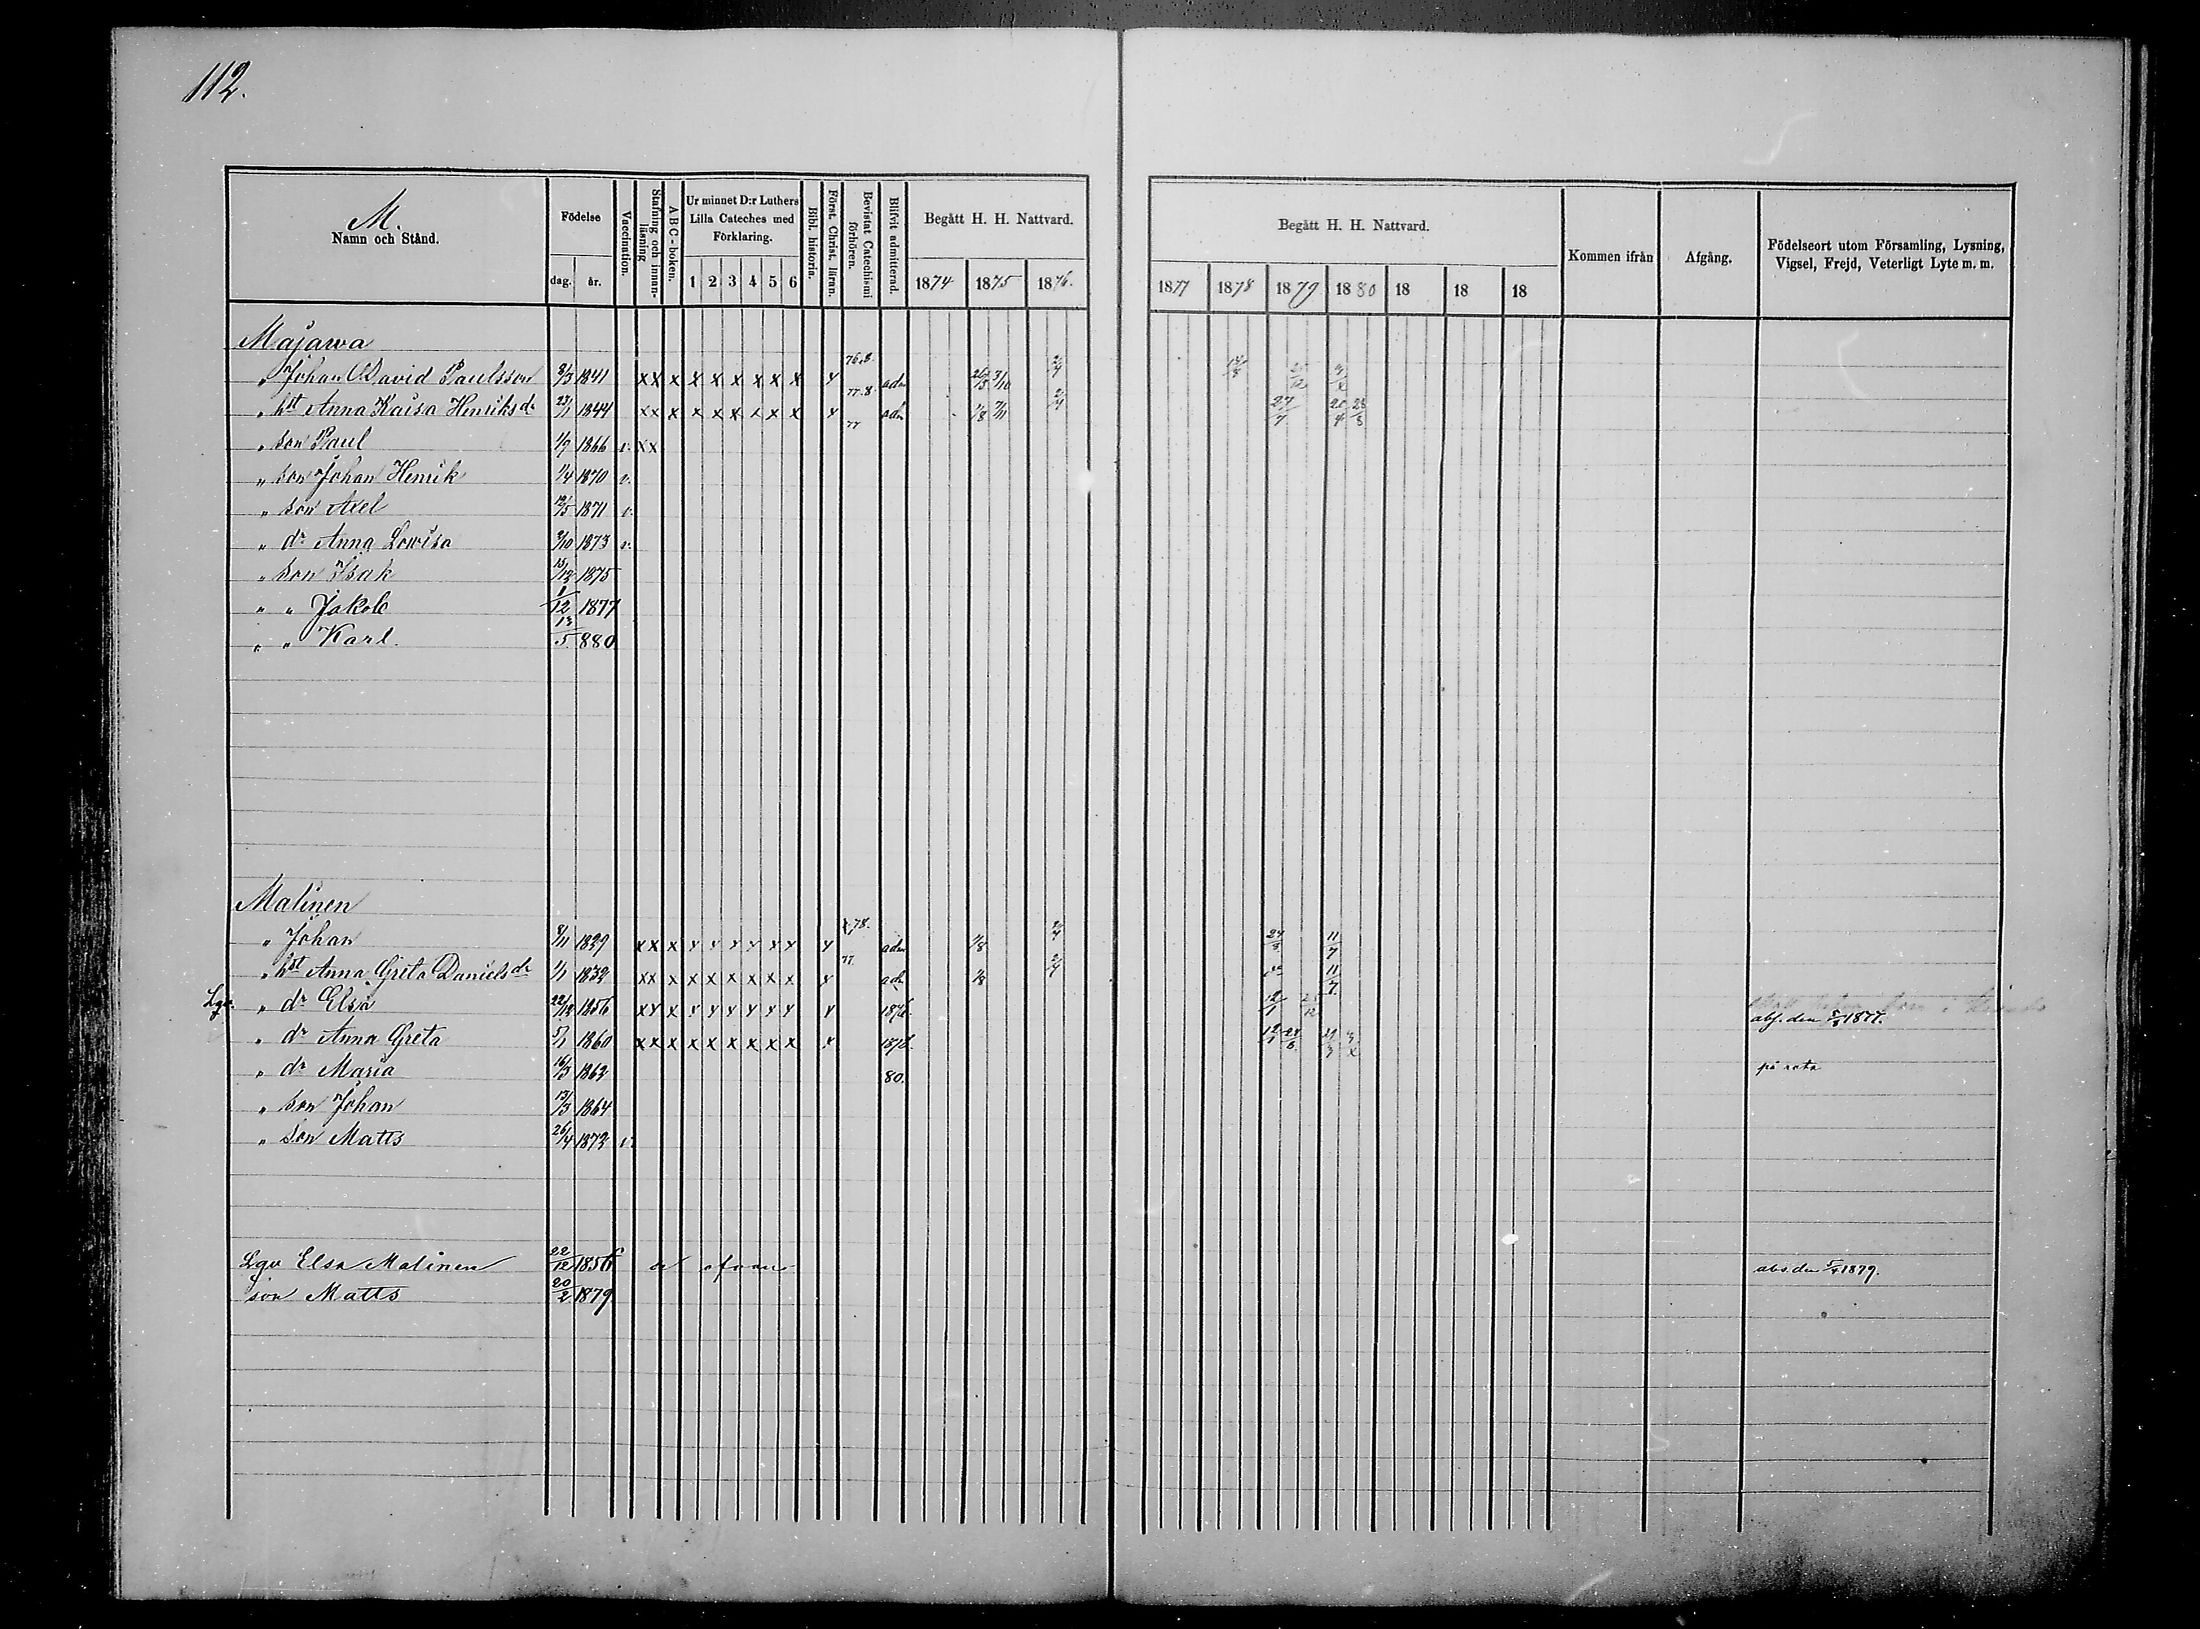 112.
M.
Namn och Stånd. Födelse dag. år. Vaccination. Stafning och innan-läsning A B C-boken. Ur minnet D:r Luthers Lilla Cateches med Förklaring. 1 2 3 4 5 6 Bibl. historia. Först. Christ. läran. Bevistat Catechismi förhören. Blifvit admitterad. Begått H. H. Nattvard. 1874 1875 1876.
Begått H. H. Nattvard. 1877 1878 1879 1880 18 18 18 Kommen ifrån Afgång. Födelseort utom Församling, Lysning, Vigsel, Frejd, Veterligt Lyte m. m.
Majawa
" Johan David Paulsson 8/3 1841 x x x x x x x x x x 76.8. adm
" hst Anna Kaisa Henriksdr 23/1 1844 x x x x x x x x x x 77.8. adm 27/7
" son Paul 1/9 1866 v. x x 77
" son Johan Henrik 1/4 1870 v.
" son Axel 12/5 1871 v.
" dr Anna Lowisa 2/10 1873 v.
" son Isak 15/12 1875
" " Jakob 1/12 1877
" " Karl. 13/5 880
Malinen
" Johan 8/11 1829 x x x x x x x x x x 78. adm 1/8 24/3 11/7
" hst Anna Greta Danielsdr 1/1 1832 x x x x x x x x x x 77 adm 1/8 11/7.
Lgv. " dr Elsa 22/12 1856 x x x x x x x x x x 1876. abs. den 5/8 1877.
" dr Anna Greta 5/1 1860 x x x x x x x x x x 1878.
" dr Maria 16/3 1862 80. på nåta
" son Johan 13/3 1864
" son Matts 26/4 1872 v.
Lgv Elsa Malinen 22/12 1856 abs. den 5/4 1879.
son Matts 20/2 1879